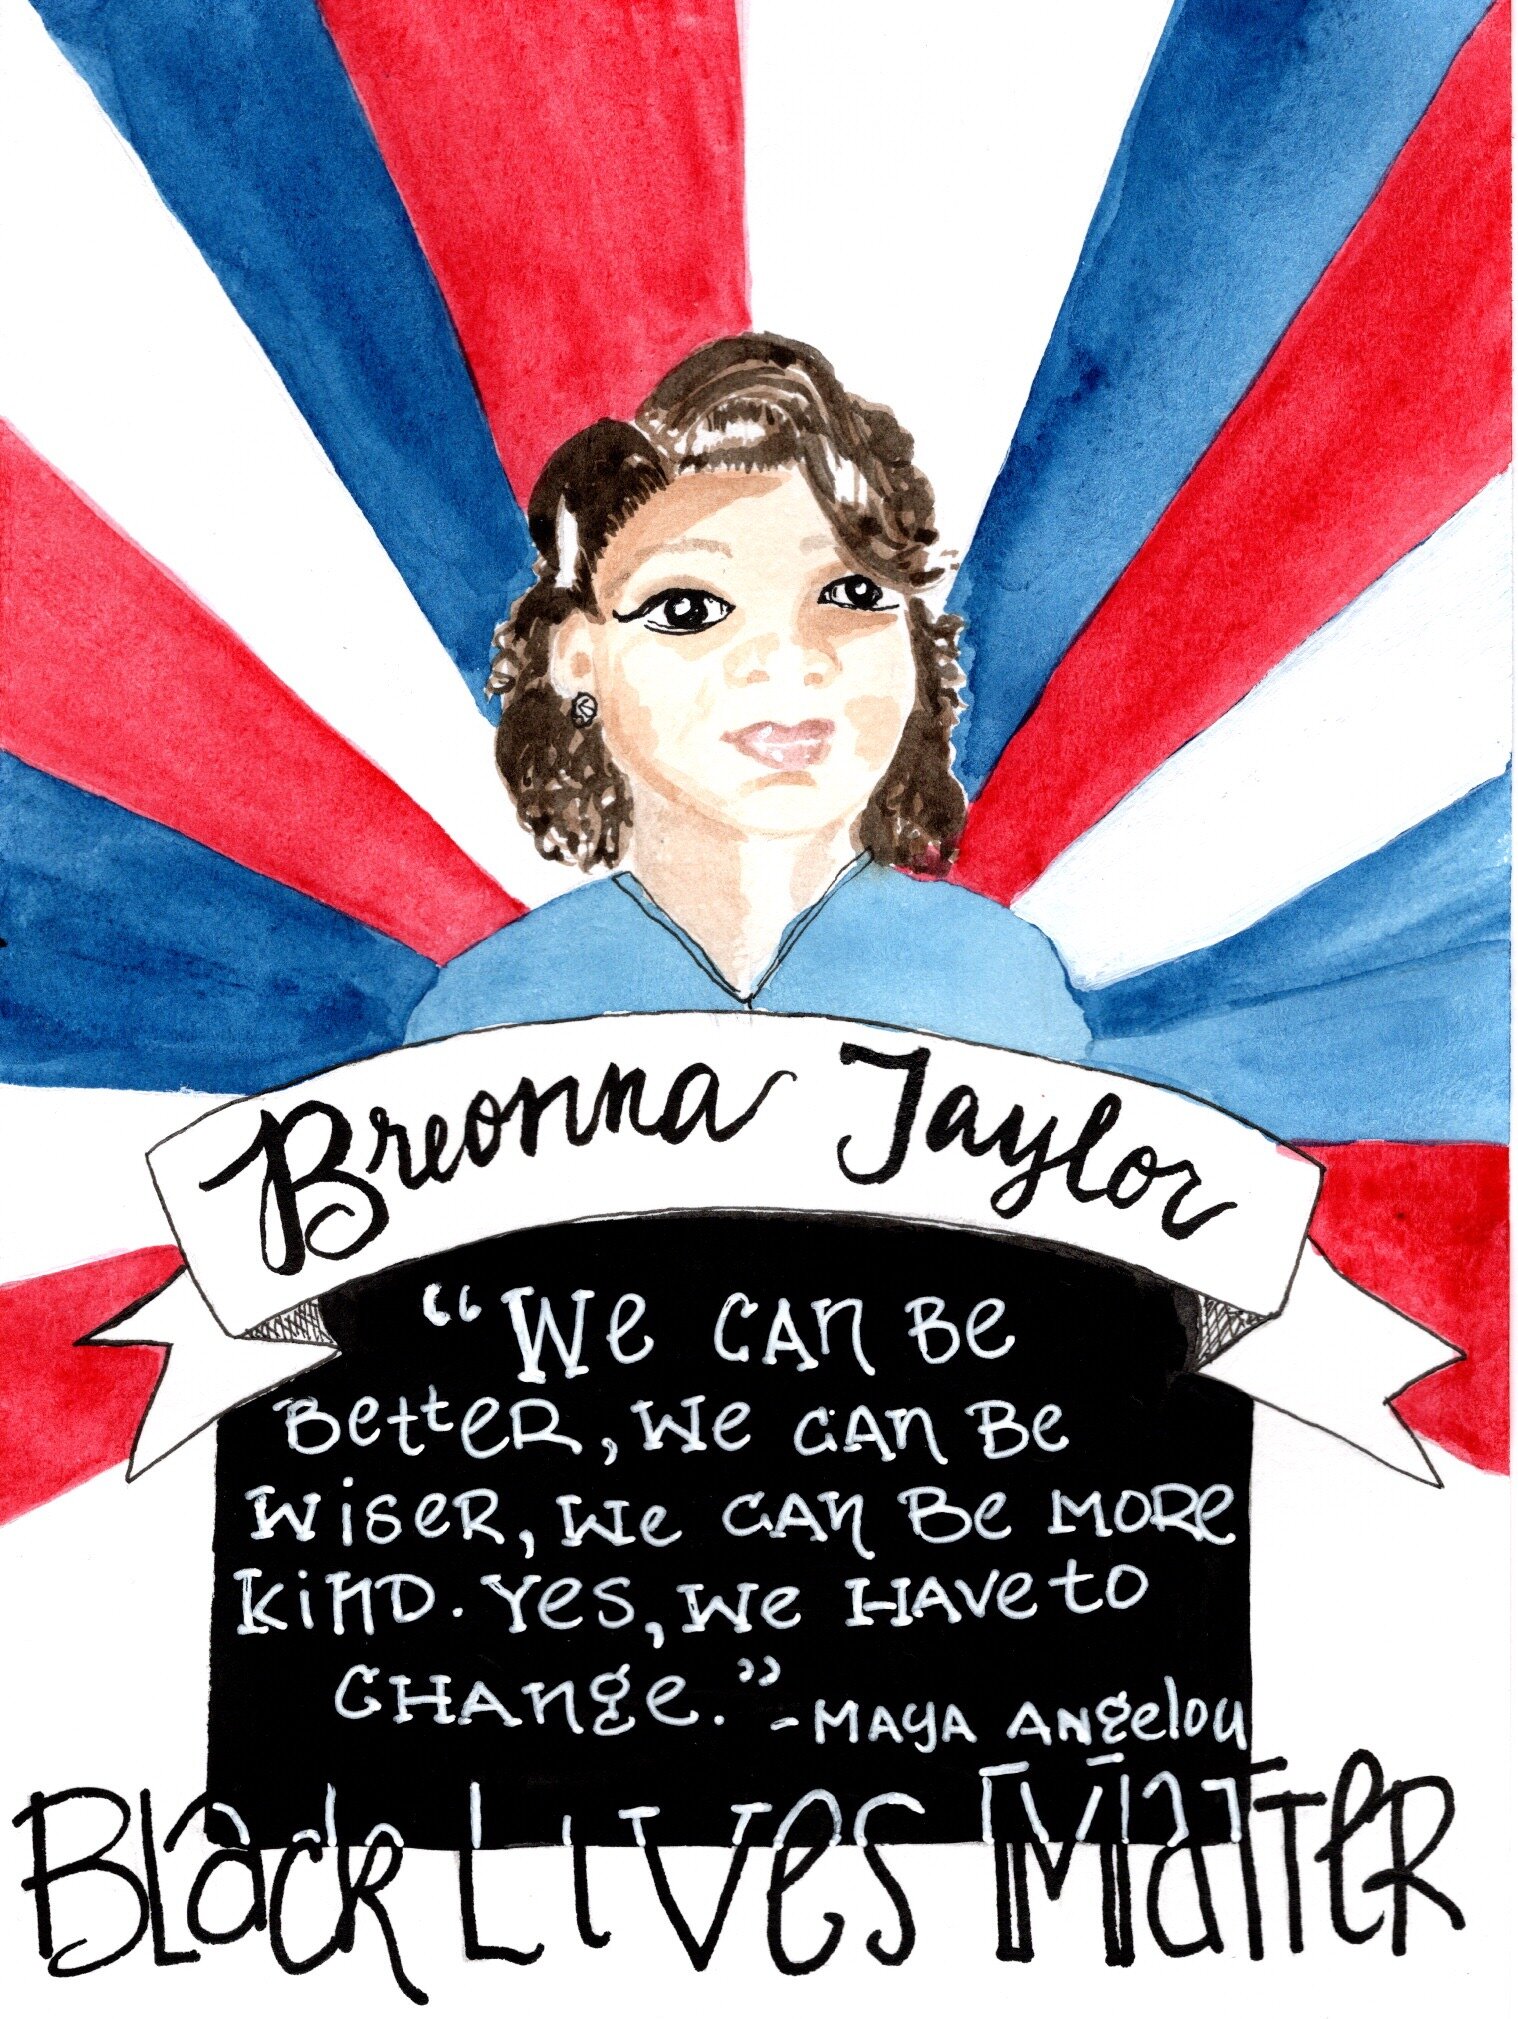 Breonna Taylor
"We can be
better, we can be
wiser, we can be more
kind. Yes, we have to
change."
- Maya Angelou
Black Lives Matter